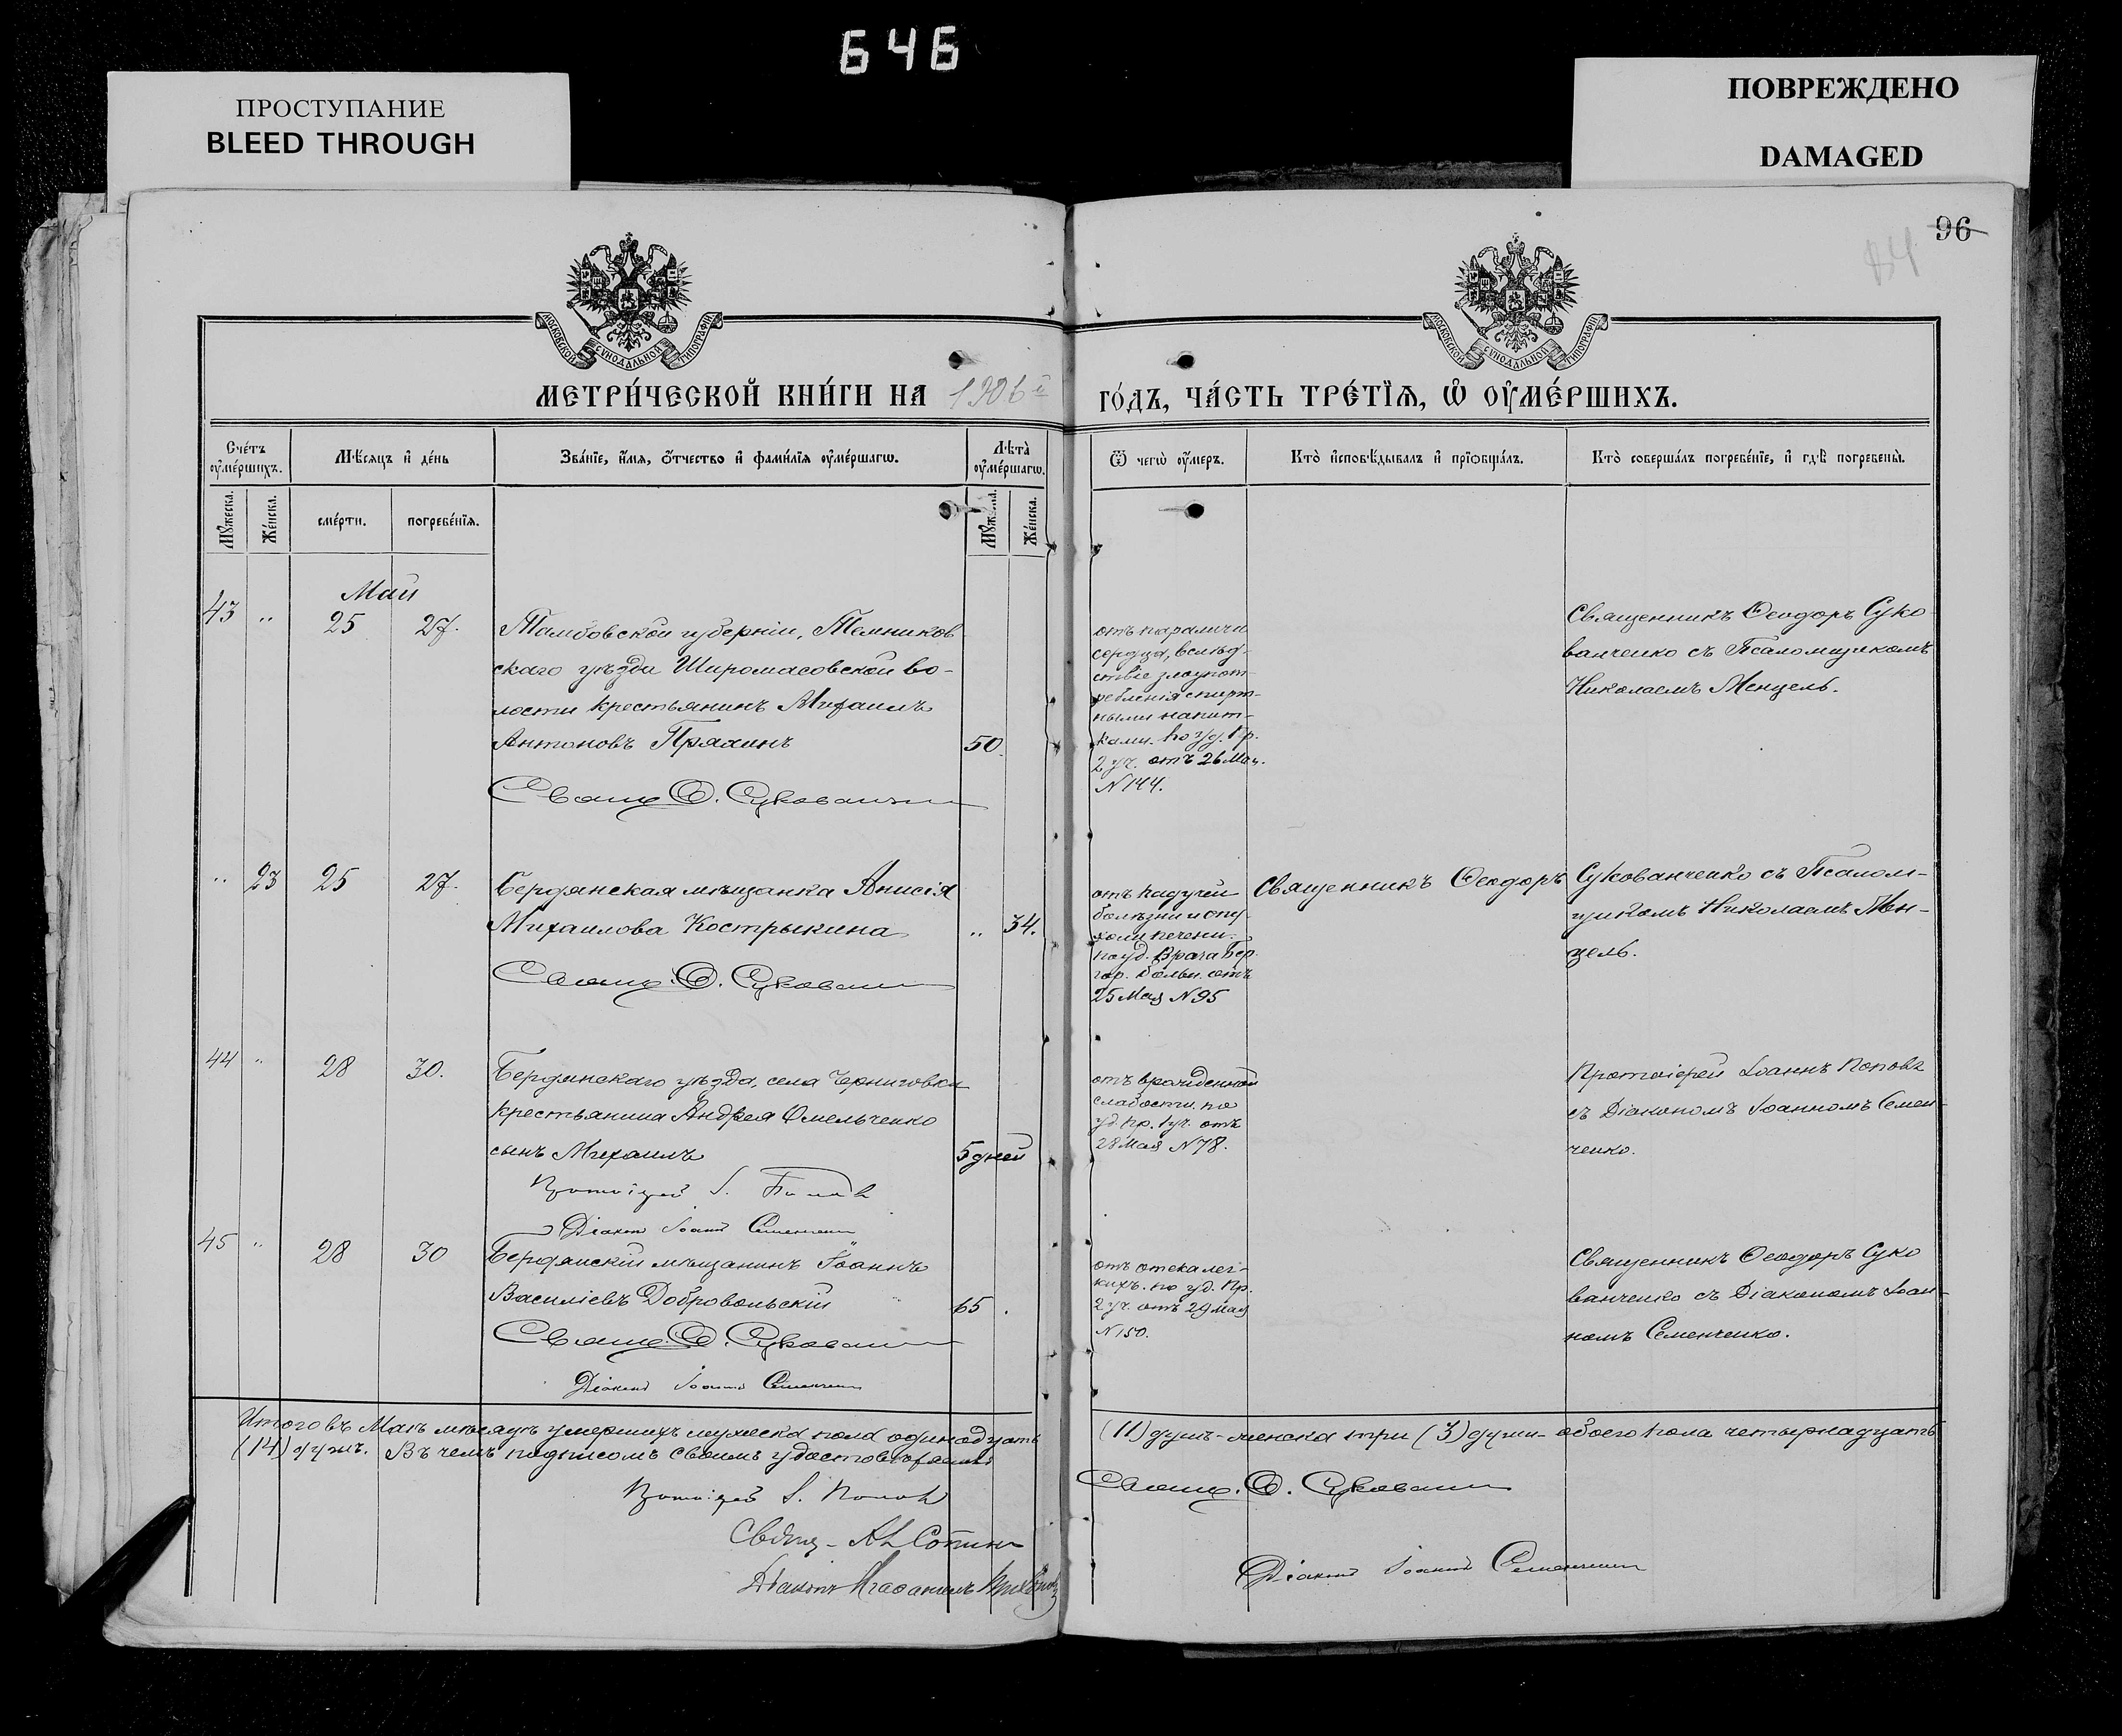 646
ПРОСТУПАНИЕ
BLEED THROUGH
ПОВРЕЖДЕНО
DAMAGED
96
84
МОСКОВСКОЙ СѴНОДАЛЬНОЙ ТИПОГРАФІИ
МОСКОВСКОЙ СѴНОДАЛЬНОЙ ТИПОГРАФІИ
МЕТРИ́ЧЕСКОЙ КНИ́ГИ НА 1906й
ГО́ДЪ, ЧА́СТЬ ТРЕ́ТЇѦ, Ѡ҆ ОУ҆МЕ́РШИХЪ.
Сче́тъ оу҆ме́ршихъ.
Мѣ́сяцъ и҆ де́нь
Зва́нїе, и҆́мя, ѻ҆́тчество и҆ фами́лїя оу҆ме́ршагѡ.
Лѣ́та оу҆ме́ршагѡ.
Ѿ чегѡ̀ оу҆́меръ.
Кто̀ и҆сповѣ́дывалъ и҆ прїѡбща́лъ.
Кто̀ соверша́лъ погребе́нїе, и҆ гдѣ̀ погребены̀.
Мꙋ́жеска.
Же́нска.
сме́рти.
погребе́нїя.
Мꙋ́жеска.
Же́нска.
Май
43 " 25 27. Тамбовской губерніи, Темников
скаго уѣзда Широмасовской во-
лости крестьянинъ Михаилъ
Антоновъ Пряхинъ 50.
Свящ. Ѳ. Сукованч
отъ паралича
сердца, вслѣд-
ствіе злоупот-
ребленія спирт-
ными напит-
ками. по уд. Пр.
2 уч. отъ 26 Мая.
N 144.
Священникъ Ѳеодоръ Суко
ванченко съ Псаломщикомъ
Николаемъ Менцель.
" 23 25 27. Бердянская мѣщанка Анисія
Михаилова Кострыкина " 34.
Свящ. Ѳ. Сукован
отъ падучей
болѣзни и опу-
холи печени.
по уд. Врача Бер.
гор. больн. отъ
25 Мая N 95
Священникъ Ѳеодоръ Сукованченко съ Псалом-
щикомъ Николаемъ Мен-
цель.
44 " 28 30. Бердянскаго уѣзда, села Черниговки
крестьянина Андрея Омельченко
сынъ Михаилъ 5 дней
Протоіерей І. Попов
Діаконъ Іоаннъ Семенченко
отъ врожденной
слабости. по
уд. Пр. 1 уч. отъ
28 Мая N 78.
Протоіерей Іоаннъ Поповъ
съ Діакономъ Іоанномъ Семен-
ченко.
45 " 28 30 Бердянскій мѣщанинъ Іоаннъ
Василіевъ Добровольскій 65.
Свящ. Ѳ. Сукован
Діаконъ Іоаннъ Семенченко
отъ отека лег-
кихъ. по уд. Пр.
2 уч. отъ 29 Мая
N 150.
Священникъ Ѳеодоръ Суко
ванченко съ Діакономъ Іоан-
номъ Семенченко.
Итого въ Маѣ мѣсяцѣ умершихъ мужеска пола одинадцать (11) душъ- женска три (3) души- обоего пола четырнадцать
(14) душъ. Въ чемъ подписомъ своимъ удостовѣряемъ
Протоіерей І. Попов
Свящ. Ѳ. Сукован
Діаконъ Іоаннъ Семенченко